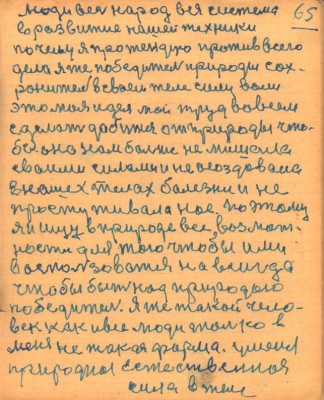 65
люди век народ вся система
в развитие нашей техники
почему я протендую против всего
дела я же победител природы сох-
ронител в своем теле силу воли
это моя идея мой труд во всем
сделат добится от природы что-
бы она нам болше не мишала
своими силами и не создовала
в наших телах болезни и не
простуживала нас, поэтому
я ищу в природе все возмож-
ности для того чтобы ими
восползоватся на всигда
чтобы быт над природого
победител. Я же такой чело-
век как и все люди толко в
меня не такая форма. умения
природная естественная
сила в теле